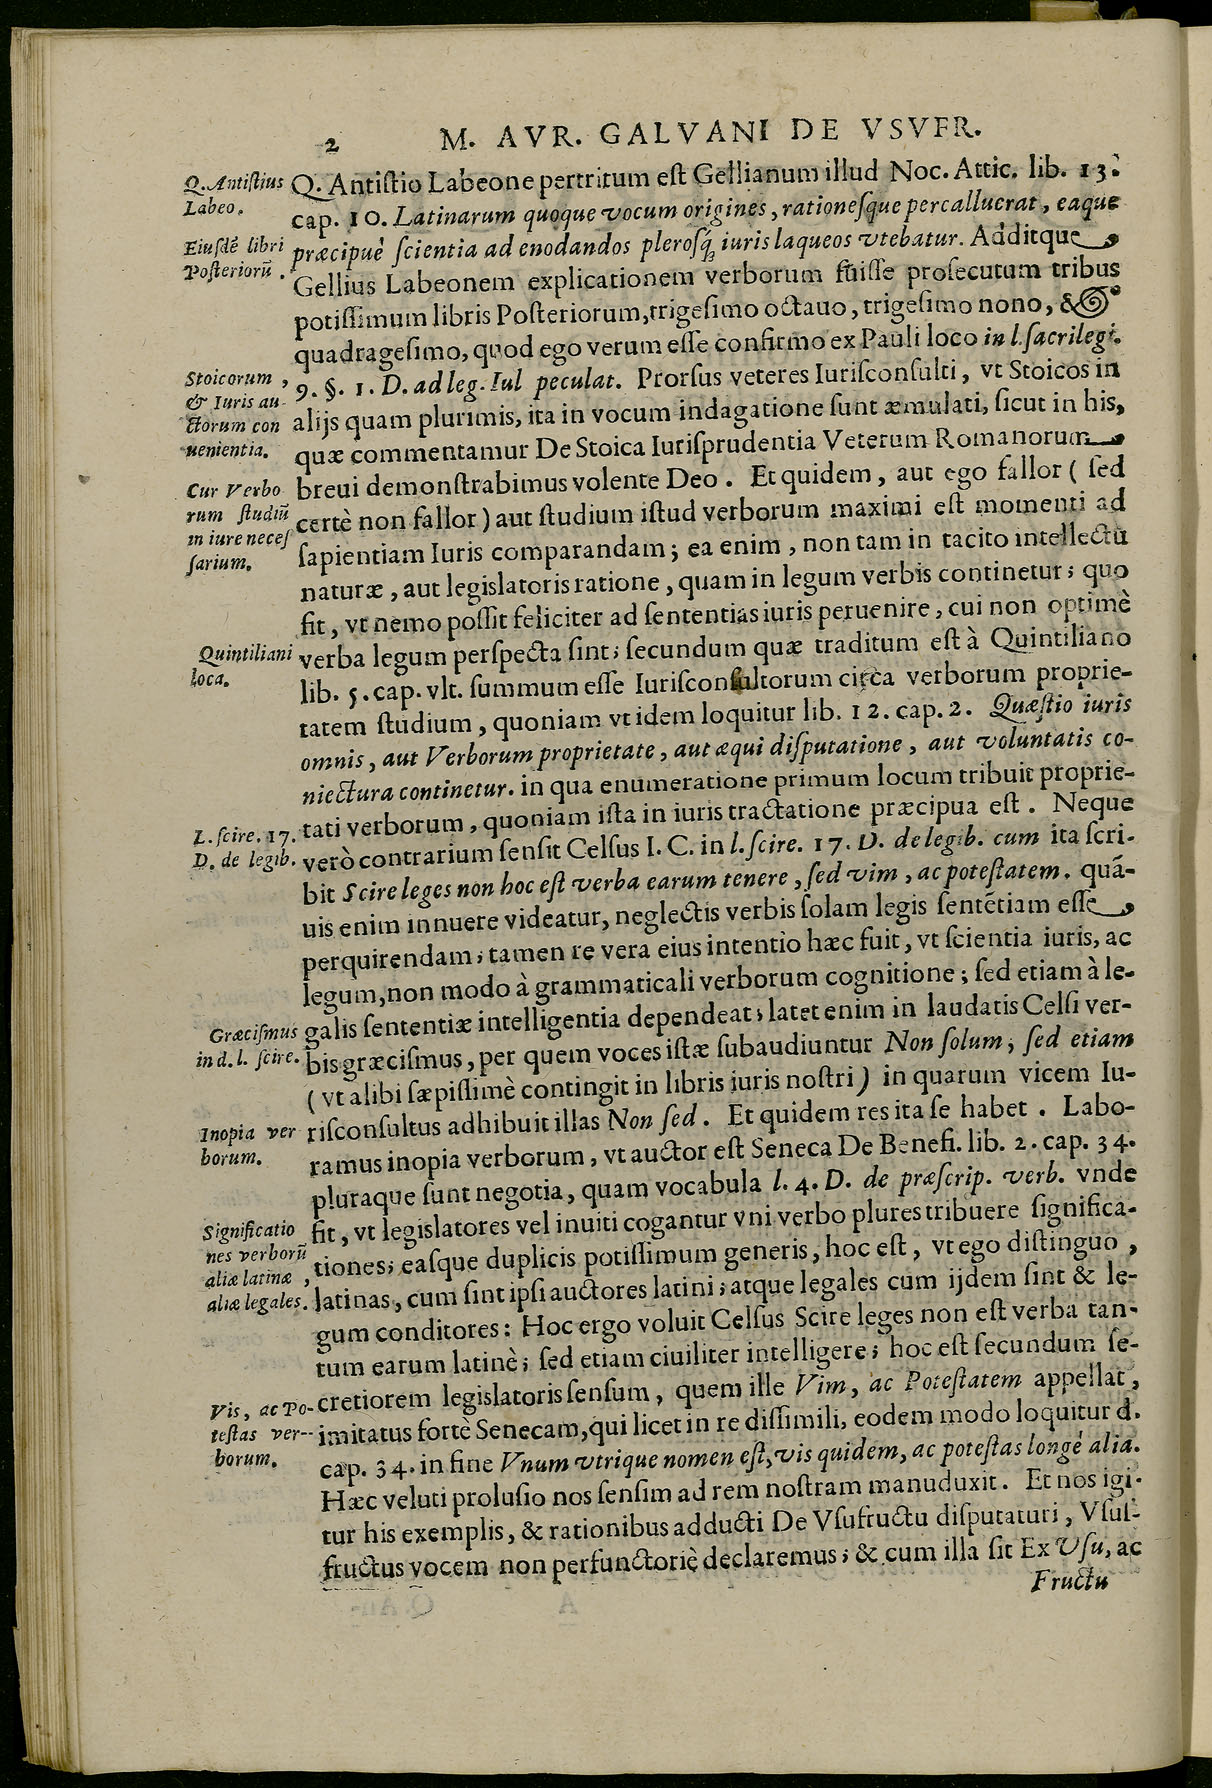 2 M. AVR. GALVANI DE VSVFR.
Q. Antiſtius
Labeo.
Eiuſdē libri
Poſteriorū.
Stoicorum,
& Iuris au-
ctorum con
uenientia.
Cur Verbo
rum ſtudiū
in iure neceſ
ſarium.
Quintiliani
loca.
L. ſcire. 17.
D. de legib.
Græciſmus
in d. l. ſcire.
Inopia ver
borum.
Significatio
nes verborū
aliæ latinæ,
aliæ legales.
Vis, ac Po-
teſtas ver-
borum.
Q. Antiſtio Labeone pertritum eſt Gellianum illud Noc. Attic. lib. 13.
cap. 10. Latinarum quoque vocum origines, rationeſque percalluerat, eaque
præcipuè ſcientia ad enodandos pleroſq́; iuris laqueos vtebatur. Additque
Gellius Labeonem explicationem verborum fuiſſe proſecutum tribus
potiſſimum libris Poſteriorum, trigeſimo octauo, trigeſimo nono, &
quadrageſimo, quod ego verum eſſe confirmo ex Pauli loco in l. ſacrilegi.
9. §. 1. D. ad leg. Iul peculat. Prorſus veteres Iuriſconſulti, vt Stoicos in
alijs quam plurimis, ita in vocum indagatione ſunt æmulati, ſicut in his,
quæ commentamur De Stoica Iuriſprudentia Veterum Romanorum
breui demonſtrabimus volente Deo. Et quidem, aut ego fallor (ſed
certè non fallor) aut ſtudium iſtud verborum maximi eſt momenti ad
ſapientiam Iuris comparandam; ea enim, non tam in tacito intellectu
naturæ, aut legislatoris ratione, quam in legum verbis continetur; quo
fit, vt nemo poſſit feliciter ad ſententias iuris peruenire, cui non optimè
verba legum perſpecta ſint; ſecundum quæ traditum eſt à Quintiliano
lib. 5. cap. vlt. ſummum eſſe Iuriſconſultorum circa verborum proprie-
tatem ſtudium, quoniam vt idem loquitur lib. 12. cap. 2. Quæſtio iuris
omnis, aut Verborum proprietate, aut æqui diſputatione, aut voluntatis co-
niectura continetur. in qua enumeratione primum locum tribuit proprie-
tati verborum, quoniam iſta in iuris tractatione præcipua eſt. Neque
verò contrarium ſenſit Celſus I. C. in l. ſcire. 17. D. de legib. cum ita ſcri-
bit Scire leges non hoc eſt verba earum tenere, ſed vim, ac poteſtatem. quā-
uis enim innuere videatur, neglectis verbis ſolam legis ſentētiam eſſe
perquirendam; tamen re vera eius intentio hæc fuit, vt ſcientia iuris, ac
legum, non modo à grammaticali verborum cognitione; ſed etiam à le-
galis ſententiæ intelligentia dependeat; latet enim in laudatis Celſi ver-
bis græciſmus, per quem voces iſtæ ſubaudiuntur Non ſolum, ſed etiam
(vt alibi ſæpiſſimè contingit in libris iuris noſtri) in quarum vicem Iu-
riſconſultus adhibuit illas Non ſed. Et quidem res ita ſe habet. Labo-
ramus inopia verborum, vt auctor eſt Seneca De Benefi. lib. 2. cap. 34.
pluraque ſunt negotia, quam vocabula l. 4. D. de præſcrip. verb. vnde
fit, vt legislatores vel inuiti cogantur vni verbo plures tribuere ſignifica-
tiones; eaſque duplicis potiſſimum generis, hoc eſt, vt ego diſtinguo,
latinas, cum ſint ipſi auctores latini; atque legales cum ijdem ſint & le-
gum conditores: Hoc ergo voluit Celſus Scire leges non eſt verba tan-
tum earum latinè; ſed etiam ciuiliter intelligere; hoc eſt ſecundum ſe-
cretiorem legislatoris ſenſum, quem ille Vim, ac Poteſtatem appellat,
imitatus fortè Senecam, qui licet in re diſſimili, eodem modo loquitur d.
cap. 34. in fine Vnum vtrique nomen eſt, vis quidem, ac poteſtas longè alia.
Hæc veluti proluſio nos ſenſim ad rem noſtram manuduxit. Et nos igi-
tur his exemplis, & rationibus adducti De Vſufructu diſputaturi, Vſuſ-
fructus vocem non perfunctoriè declaremus; & cum illa ſit Ex Vſu, ac
Fructu